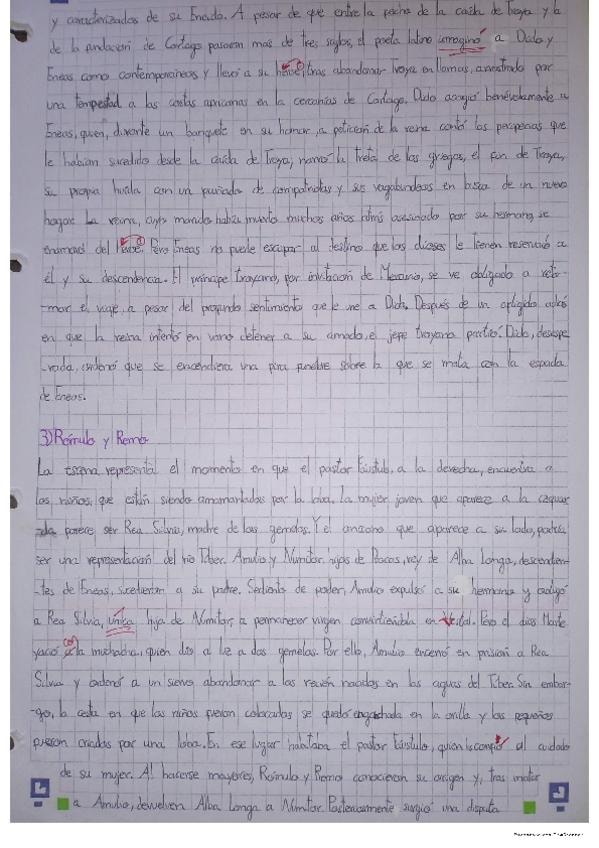 y caracterizados de su Eneida. A pesar de que entre la fecha de la caída de Troya y la
de la fundación de Cartago pasaron mas de tres siglos, el poeta latino imaginó a Dido y
Eneas como contemporaneos y llevó a su héroe, tras abandonar Troya en llamas, arrastrado por
una tempestad a las costas africanas en la cercanías de Cartago. Dido acogió benévolamente a
Eneas, quien, durante un banquete en su honor, a petición de la reina contó las peripecias que
le habían sucedido desde la caída de Troya; narró la treta de los griegos, el fin de Troya,
su propia huida con un puñado de compatriotas y sus vagabundeos en busca de un nuevo
hogar. La reina, cuyo marido había muerto muchos años atrás asesinado por su hermano, se
enamoró del héroe. Pero Eneas no puede escapar al destino que los dioses le tienen reservado a
él y su descendencia. El príncipe troyano, por invitación de Mercurio, se ve obligado a reto-
-mar el viaje, a pesar del profundo sentimiento que le une a Dido. Después de un afligido adiós
en que la reina intentó en vano detener a su amado, el jefe troyano partió. Dido, desespe
-rada, ordenó que se encendiera una pira funebre sobre la que se mata con la espada
de Eneas.
3) Rómulo y Remo
La escena representa el momento en que el pastor Fáustulo, a la derecha, encuentra a
los niños, que están siendo amamantados por la loba. La mujer joven que aparece a la izquier
-da parece ser Rea Silvia, madre de los gemelos. Y el anciano que aparece a su lado, podría
ser una representación del río Tiber. Amulio y Numitor, hijos de Procas, rey de Alba Longa, descendien-
-tes de Eneas, sucedieron a su padre. Sediento de poder, Amulio expulsó a su hermano y obligó
a Rea Silvia, única hija de Numitor, a permanecer virgen convirtiéndola en Vestal. Pero el dios Marte
yació con la muchacha, quien dio a luz a dos gemelos. Por ello, Amulio encerró en prisión a Rea
Silvia y ordenó a un siervo abandonar a los recién nacidos en las aguas del Tiber. Sin embar-
-go, la cesta en que los niños fueron colocados se quedó enganchada en la orilla y los pequeños
fueron criados por una loba. En ese lugar habitaba el pastor Fáustulo, quien los confió al cuidado
de su mujer. Al hacerse mayores, Rómulo y Remo conocieron su origen y, tras matar
a Amulio, devuelven Alba Longa a Numitor. Posteriormente surgió una disputa